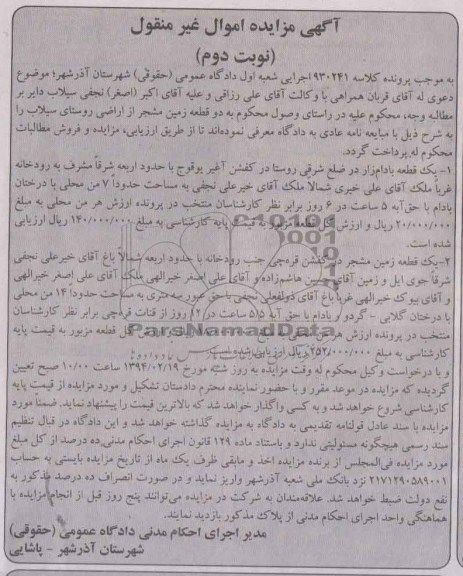 آگهی مزایده اموال غیر منقول
(نوبت دوم)
به موجب پرونده کلاسه ۹۳۰۲۴۱ اجرایی شعبه اول دادگاه عمومی (حقوقی) شهرستان آذرشهر؛ موضوع
دعوی له آقای قربان همراهی با وکالت آقای علی رزاقی و علیه آقای اکبر (اصغر) نجفی سیلاب دایر بر
مطالبه وجه، محکوم علیه در راستای وصول محکوم به دو قطعه زمین مشجر از اراضی روستای سیلاب را
به شرح ذیل با مبایعه نامه عادی به دادگاه معرفی نموده‌اند تا از طریق ارزیابی، مزایده و فروش مطالبات
محکوم له پرداخت گردد.
۱- یک قطعه بادام‌زار در ضلع شرقی روستا در کفشن آغیر یوقوج با حدود اربعه شرقاً مشرف به رودخانه
غرباً ملک آقای علی خیری شمالا ملک آقای خیرعلی نجفی به مساحت حدوداً ۷ من محلی با درختان
بادام با حق‌آبه ۵ ساعت در ۶ روز برابر نظر کارشناسان منتخب در پرونده ارزش هر من محلی به مبلغ
۲۰/۰۰۰/۰۰۰ ریال و ارزش کل قطعه مزبور به قیمت پایه کارشناسی به مبلغ ۱۴۰/۰۰۰/۰۰۰ ریال ارزیابی
شده است.
۲- یک قطعه زمین مشجر در کفشن قره‌چی جنب رودخانه با حدود اربعه شمالاً باغ آقای خیرعلی نجفی
شرقاً جوی ایل و زمین آقای حسین هاشم‌زاده و آقای علی اصغر خیرالهی ملک آقای علی اصغر خیرالهی
و آقای بیوک خیرالهی غرباً باغ آقای ذوالفعلی نجفی با حق عبور سه متری به مساحت حدوداً ۱۴ من محلی
با درختان گلابی - گردو / بادام با حق آبه ۵/۵ ساعت در ۱۲ روز از قنات قره‌چی برابر نظر کارشناسان
منتخب در پرونده ارزش هر من محلی به مبلغ کل قطعه مزبور به قیمت پایه
کارشناسی به مبلغ ۲۵۲/۰۰۰/۰۰۰ ریال ارزیابی شده است
و با درخواست وکیل محکوم له وقت مزایده به روز شنبه مورخ ۱۳۹۴/۰۲/۱۹ ساعت ۱۰/۰۰ صبح تعیین
گردیده که مزایده در موعد مقرر و با حضور نماینده محترم دادستان تشکیل و مورد مزایده از قیمت پایه
کارشناسی شروع خواهد شد و به کسی واگذار خواهد شد که بالاترین قیمت را پیشنهاد نماید. ضمناً مورد
مزایده با سند عادل قولنامه تقدیمی به دادگاه به مزایده گذاشته خواهد شد و این دادگاه در قبال تنظیم
سند رسمی هیچگونه مسئولیتی ندارد و باستناد ماده ۱۲۹ قانون اجرای احکام مدنی ده درصد از کل مبلغ
مورد مزایده فی‌المجلس از برنده مزایده اخذ و مابقی ظرف یک ماه از تاریخ مزایده بایستی به حساب
۲۱۷۱۲۹۰۵۸۹۰۰۱ نزد بانک ملی شعبه آذرشهر واریز نماید و در صورت انصراف ده درصد مذکور به
نفع دولت ضبط خواهد شد. علاقه‌مندان به شرکت در مزایده می‌توانند پنج روز قبل از انجام مزایده با
هماهنگی واحد اجرای احکام مدنی از پلاک مذکور بازدید نمایند.
مدیر اجرای احکام مدنی دادگاه عمومی (حقوقی)
شهرستان آذرشهر - پاشایی
ParsNamadData